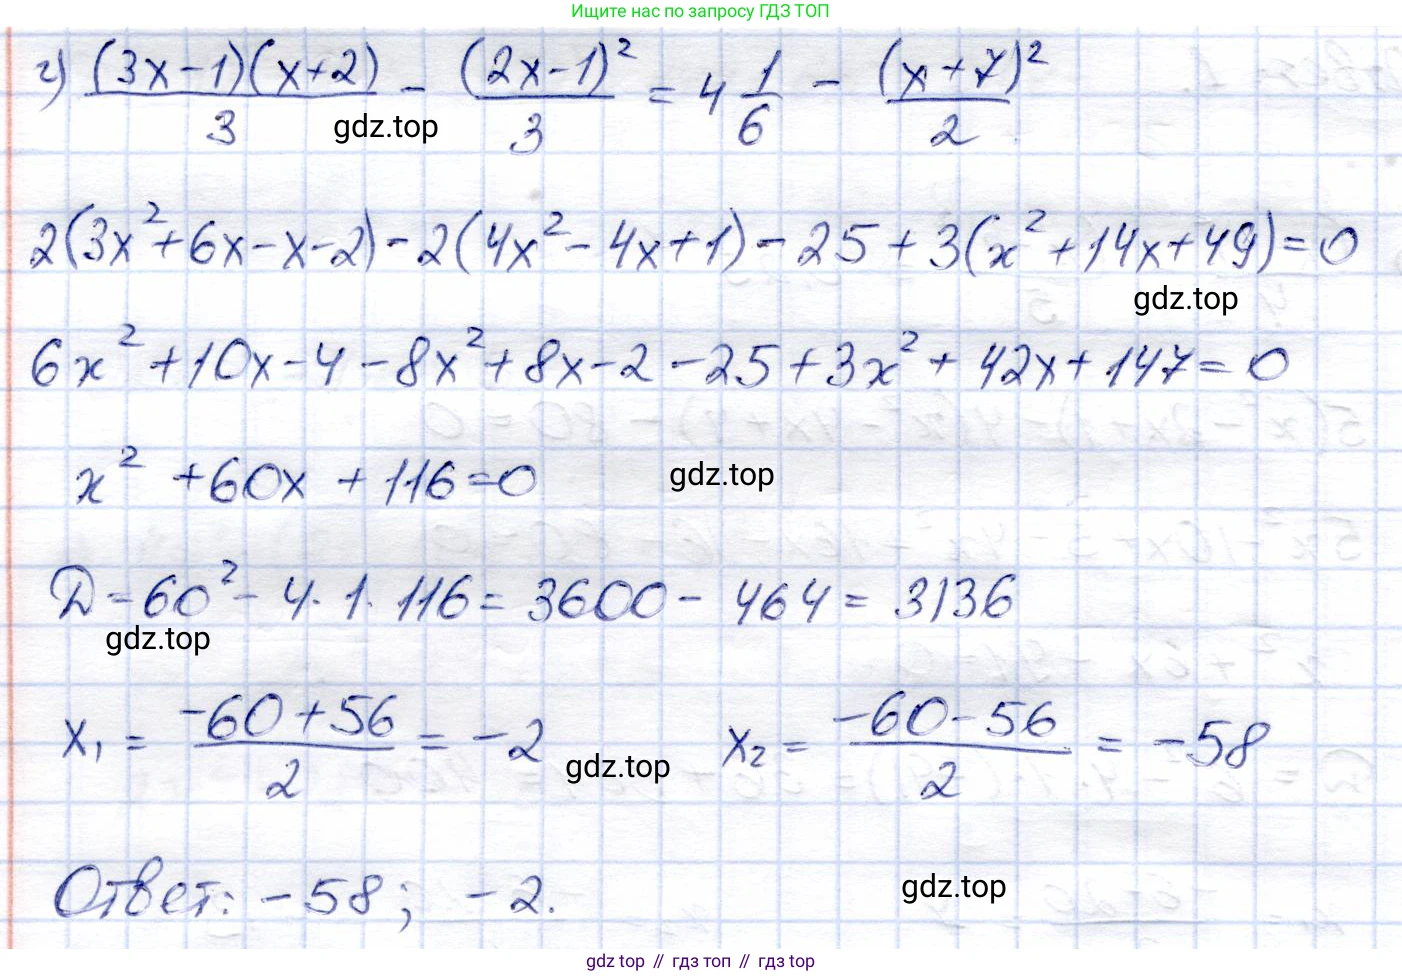 Ищите нас по запросу ГДЗ ТОП
г) (3x-1)(x+2)/3 - (2x-1)²/3 = 4 1/6 - (x+7)²/2
gdz.top
2(3x²+6x-x-2)-2(4x²-4x+1)-25+3(x²+14x+49)=0
gdz.top
6x²+10x-4-8x²+8x-2-25+3x²+42x+147=0
x²+60x+116=0
gdz.top
D=60²-4·1·116=3600-464=3136
gdz.top
x₁ = (-60+56)/2 = -2 x₂ = (-60-56)/2 = -58
gdz.top
Ответ: -58; -2.
gdz.top
gdz top // гдз топ // гдз top